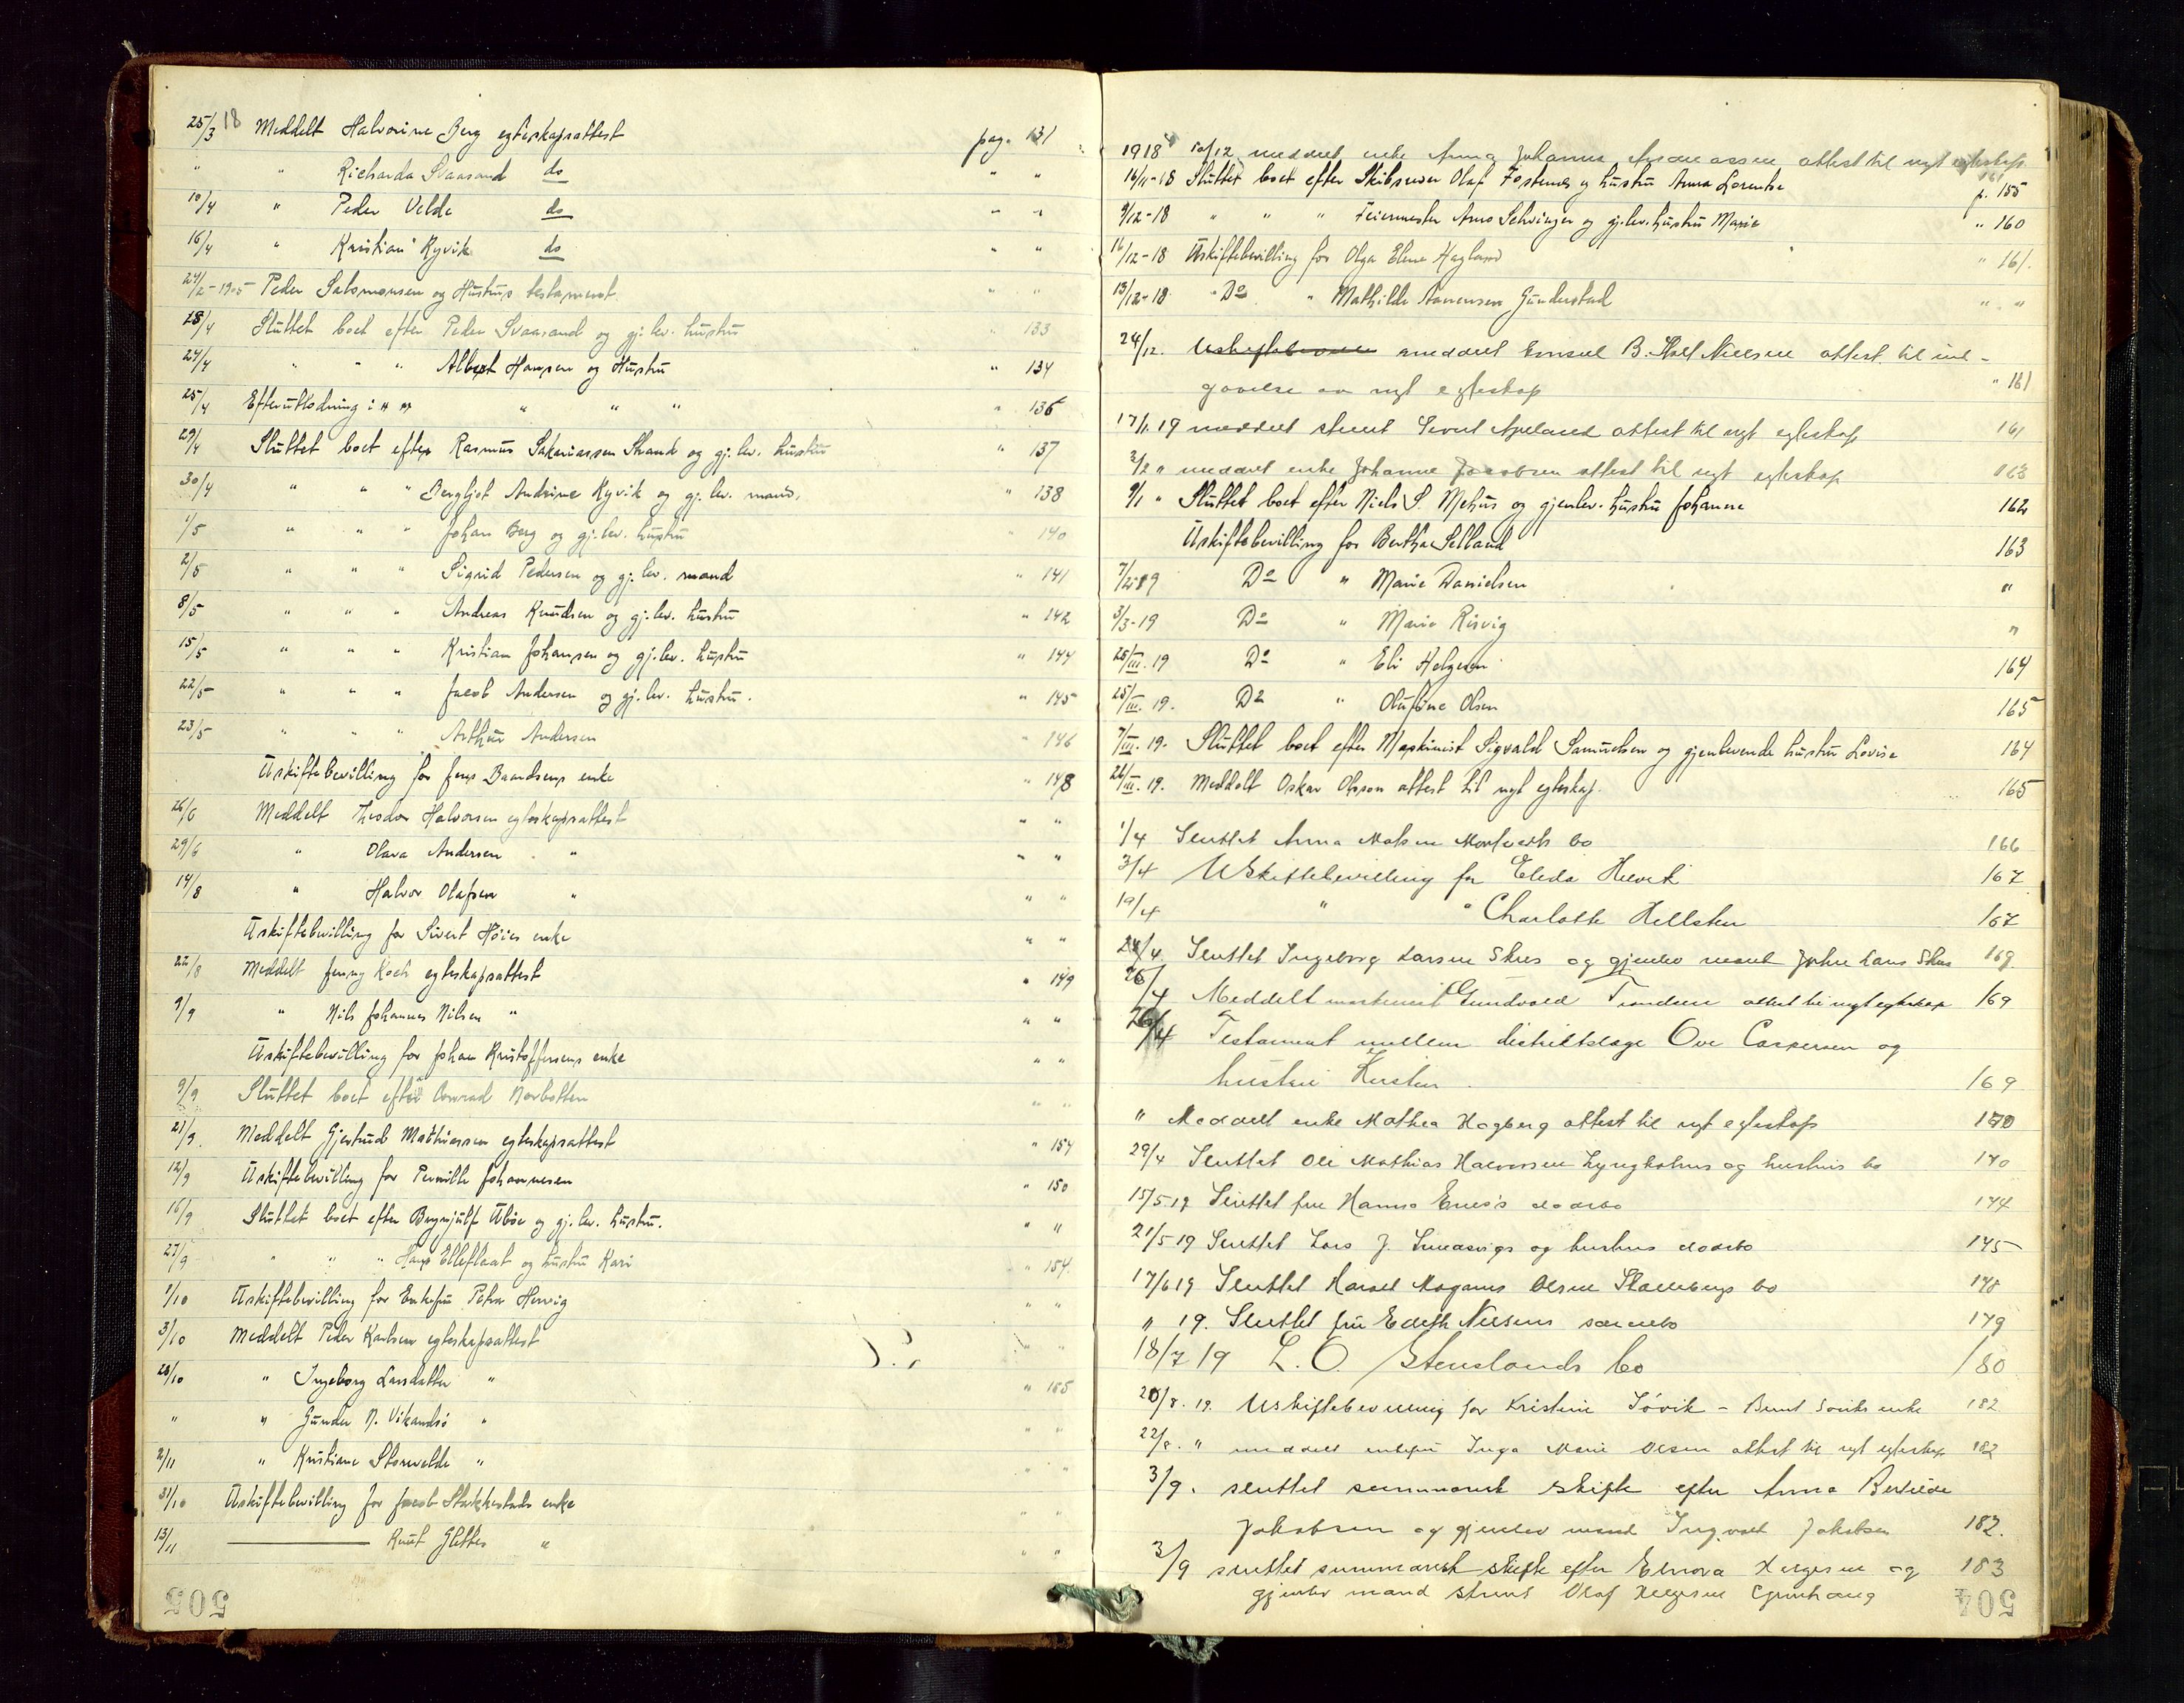 25/3 18 Meddelt Halvorine Berg egteskapsattest pag. 131
" " Richarda Svaasand do " "
10/4 " Peder Velde do " "
16/4 " Kristian Ryvik do " "
27/2-1905 Peder Salomonsen og Hustrus testament " "
18/4 Sluttet boet efter Peder Svaasand og gj. lev. hustru " 133
24/4 " " " Albert Hansen og Hustru " 134
25/4 Efterutlodning i " " " " " 136
29/4 Sluttet boet efter Rasmus Sakariassen Strand og gj. lev. hustru " 137
30/4 " " " Bergljot Andrine Ryvik og gj. lev. mand. " 138
1/5 " " " Johan Berg og gj. lev. hustru " 140
2/5 " " " Sigrid Pedersen og gj. lev. mand " 141
8/5 " " " Andreas Knudsen og gj. lev. hustru " 142
15/5 " " " Kristian Johansen og gj. lev. hustru " 144
22/5 " " " Jacob Andersen og gj. lev. hustru. " 145
23/5 " " " Arthur Andersen " 146
Uskiftebevilling for Jens Baandsens enke " 148
26/6 Meddelt Theodor Halvorsen egteskapsattest " "
29/6 " Olava Andersen " " "
14/8 " Halvor Olafsen " " "
Uskiftebevilling for Sivert Høies enke " "
22/8 Meddelt Jenny Koch egteskapsattest " 149
9/9 " Nils Johannes Nilsen " " "
Uskiftebevilling for Johan Kristoffersens enke " "
9/9 Sluttet boet efter Conrad Norbotten " "
21/9. Meddelt Gjertrud Mathiassen egteskapsattest " 154
12/9 Uskiftebevilling for Pernille Johannesen " 150
16/9 Sluttet boet efter Brynjulf Ubøe og gj. lev. hustru. " "
27/9 " " " Hans Elleflaat og hustru Kari " 154.
1/10 Uskiftebevilling for Enkefru Petra Hervig " "
3/10 Meddelt Peder Karlsen egteskapsattest " "
28/10 " Ingeborg Larsdatter " " 155
" " Gunder N. Vikandsø " " "
2/11 " Kristiane Storevelde " " "
31/10 Uskiftebevilling for Jacob Stakkestads enke " "
13/11 Knut Glettes " " "
505
1918 10/12 meddelt enke Anna Johanna Andreassen attest til nyt egteskap 161
16/11-18 Sluttet boet efter Skibsreder Olaf Fostenes og hustru Anna Lorentse p. 155
9/12-18 " " " Feiermester Arno Selvinger og gj. lev. hustru Marie " 160
16/12-18 Uskiftebevilling for Olga Elene Hagland " 161.
13/12-18 Do " Mathilde Aanensen Gunderstad " "
24/12. meddelt konsul B. Holt Nielsen attest til ind-
gaaelse av nyt egteskap " 161
17/1. 19 meddelt stuert Severt Apeland attest til nyt egteskap 161
3/2 " meddelt enke Johanne Jacobsen attest til nyt egteskap 163
9/1 " Sluttet boet efter Niels S. Mehus og gjenlev. hustru Johanne 162
Uskiftebevilling for Berthe Selland 163
7/2-19 Do " Marie Danielsen "
3/3-19 Do " Marie Risvig "
25/III. 19 Do " Eli Helgesen 164
25/III. 19. Do " Olufine Olsen 165
7/III. 19. Sluttet boet efter Maskinist Sigvald Samuelsen og gjenlevende hustru Lovise 164
26/III. 19. Meddelt Oskar Olsson attest til nyt egteskap. 165
1/4 Sluttet Anna Malene Mortveits bo 166
3/4 Uskiftebevilling for Elida Helvik 167
19/4 " " Charlotte Hellsten 167
24/4. Sluttet Ingeborg Larsen Skres og gjenlev mand John Lars Skres 169
26/4 Meddelt maskinist Gundvald Trondsen attest til nyt egteskap 169
26/4 Testament mellem distriktslæge Ove Caspersen og
hustru Kirsten 169
" Meddelt enke Mathea Hagberg attest til nyt egteskap 170
29/4 Sluttet Ole Mathias Halvorsen Lyngholms og hustrus bo 170
15/5 19 Sluttet fru Hanna Enes's dødsbo 174
21/5 19 Sluttet Lars J. Smedsvigs og hustrus dødsbo 175
17/6 19 Sluttet Harald Magnus Olsen Stallebergs bo 178
" 19. Sluttet fru Edith Nielsens særebo 179
18/7 19 L. O. Stenslands bo 180
20/8. 19. Uskiftebevilling for Kristine Søvik - Bernt Søviks enke 182
22/8. " meddelt enkefru Inga Marie Olsen attest til nyt egteskap 182
3/9. sluttet summarisk skifte efter Anna Bertilde
Jakobsen og gjenlev mand Ingvald Jakobsen 182.
3/9 sluttet summarisk skifte efter Elnora Helgesen og 183
gjenlev mand stuert Olaf Helgesen Grønhaug
504